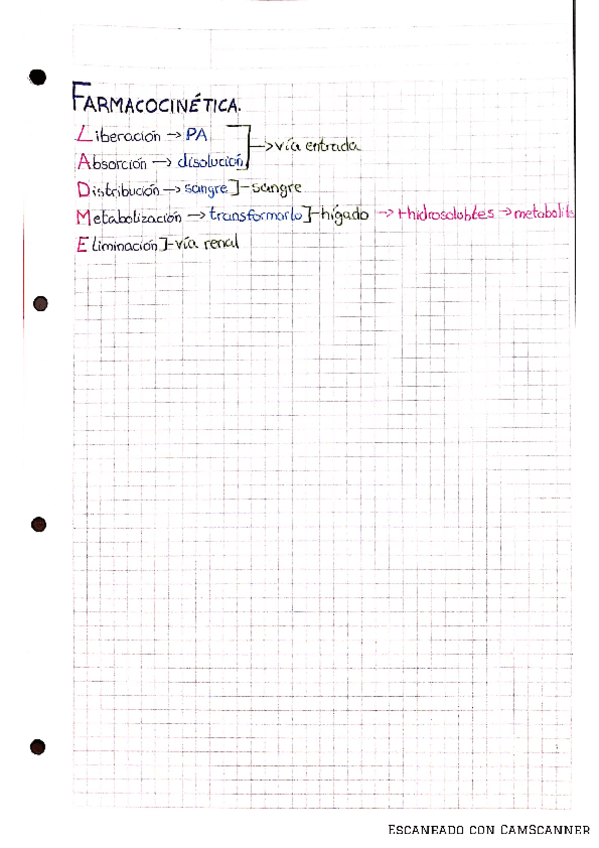 FARMACOCINÉTICA.
Liberación → PA
Absorción → disolución → vía entrada
Distribución → sangre ]- sangre
Metabolización → transformarlo ]- hígado → +hidrosolubles → metabolito
Eliminación ]- vía renal
ESCANEADO CON CAMSCANNER